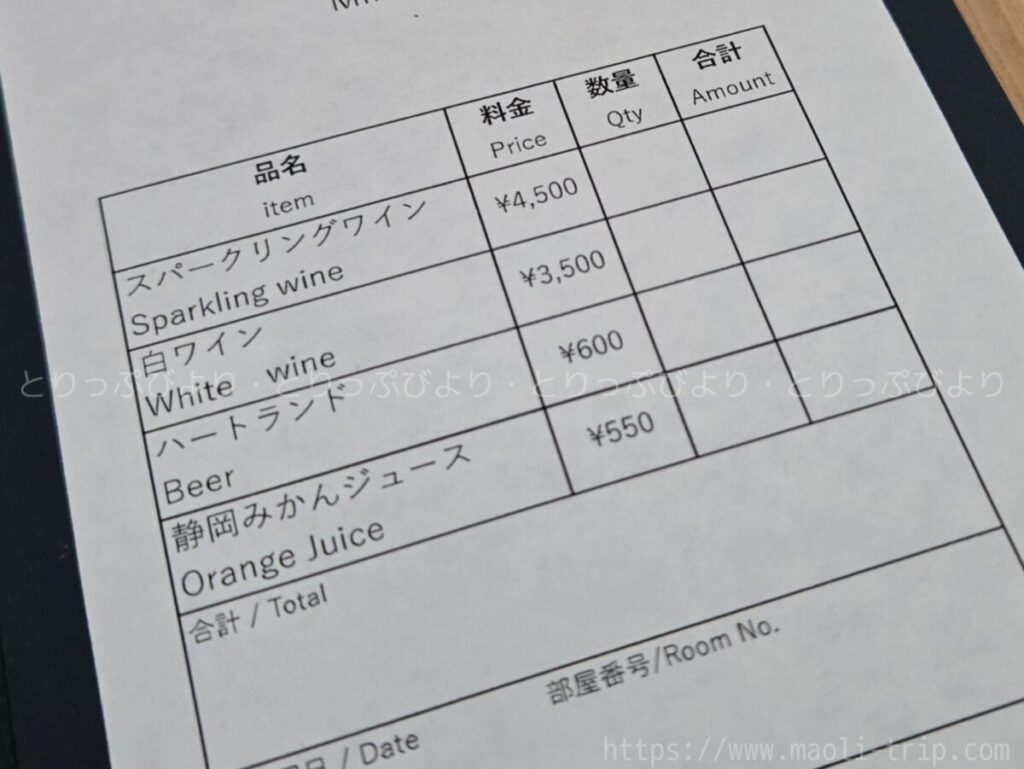 品名 料金 数量 合計
item Price Qty Amount
スパークリングワイン ¥4,500
Sparkling wine
白ワイン ¥3,500
White wine
ハートランド ¥600
Beer
静岡みかんジュース ¥550
Orange Juice
合計 / Total
部屋番号/Room No.
/ Date
とりっぷびより・とりっぷびより・とりっぷびより・とりっぷびより
https://www.maoli-trip.com